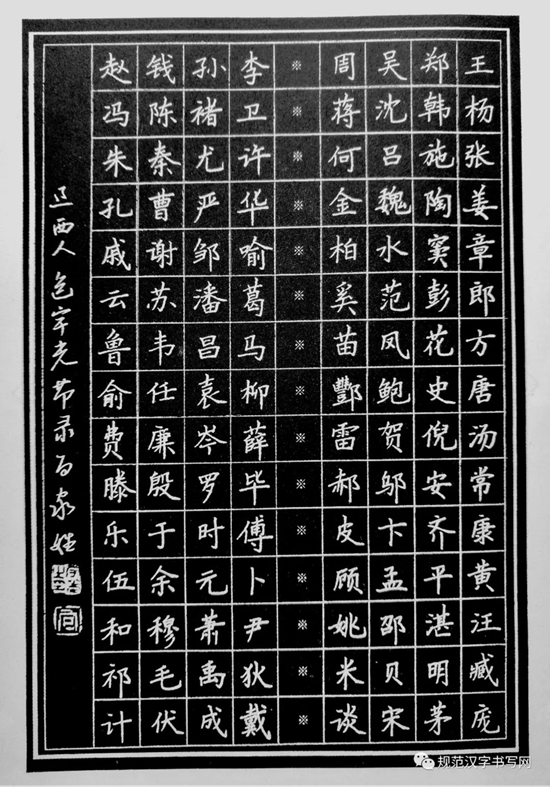 赵钱孙李※周吴郑王
冯陈褚卫※蒋沈韩杨
朱秦尤许※何吕施张
孔曹严华※金魏陶姜
戚谢邹喻※柏水窦章
云苏潘葛※奚范彭郎
鲁韦昌马※苗凤花方
俞任袁柳※酆鲍史唐
费廉岑薛※雷贺倪汤
滕殷罗毕※郝邬安常
乐于时傅※皮卞齐康
伍余元卜※顾孟平黄
和穆萧尹※姚邵湛汪
祁毛禹狄※米贝明臧
计伏成戴※谈宋茅庞
辽西人包宇光节录百家姓
规范汉字书写网